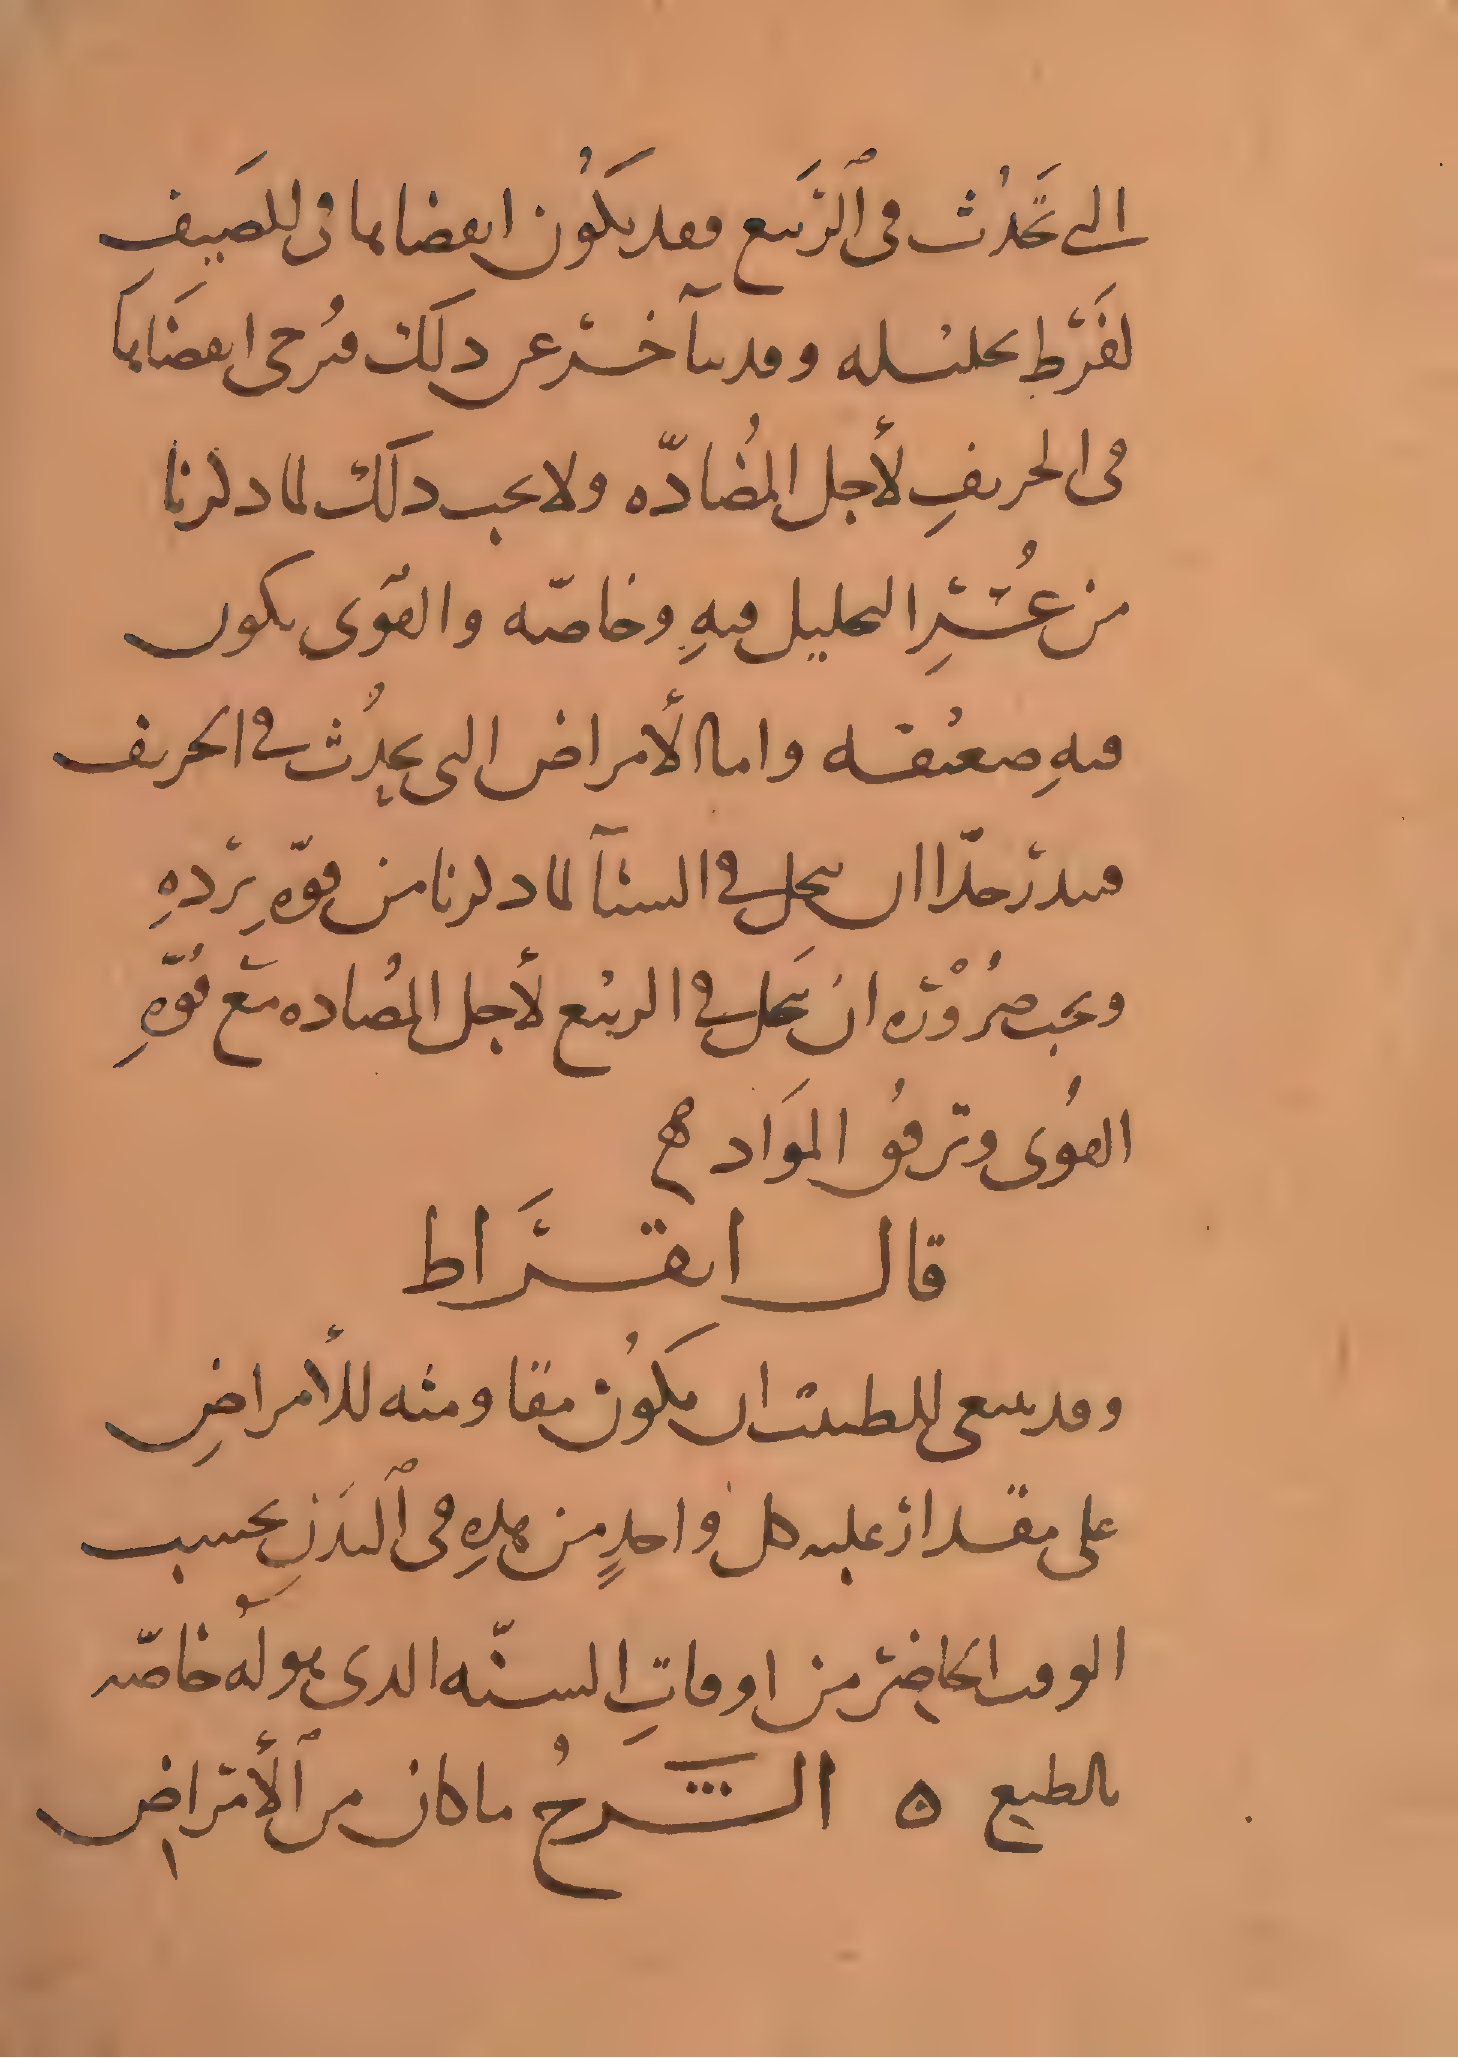 التي تَحدُث في ٱلرَبيع فقد يكُون انقضاءها في للصَيفِ
لفَرط تحليله وقد يتآخر عن ذلَك فيُرجى انقضَاءها
في الخريفِ لأجل المُضادّه ولا يجب ذلَك لما ذكرنا
من عُسرِ التحليل فيهِ وخاصّه والقوَى يكون
فيهِ ضعيفه واما الأمراض التي يحدُث في الخريف
فيندر جدّا ان ينحل في الشتآ لما ذكرنا من قوّه بردهِ
ويجب ضرُوْره ان يَنحل في الربيع لأجل المُضاده مَع قُوّهِ
القُوى وترقُق المَوَاد ه
قال ابقرَاط
وقد ينبغي للطبيب ان يكُون مقاومته للأمراضِ
على مقدار غلبه كل واحدٍ من هذهِ في ٱلبَدَنِ بحسب
الوقت الحاضر من اوقاتِ السنّه الذي هو لَه خاصّه
بالطبع ه الشَرحُ ما كان من ٱلأمراض